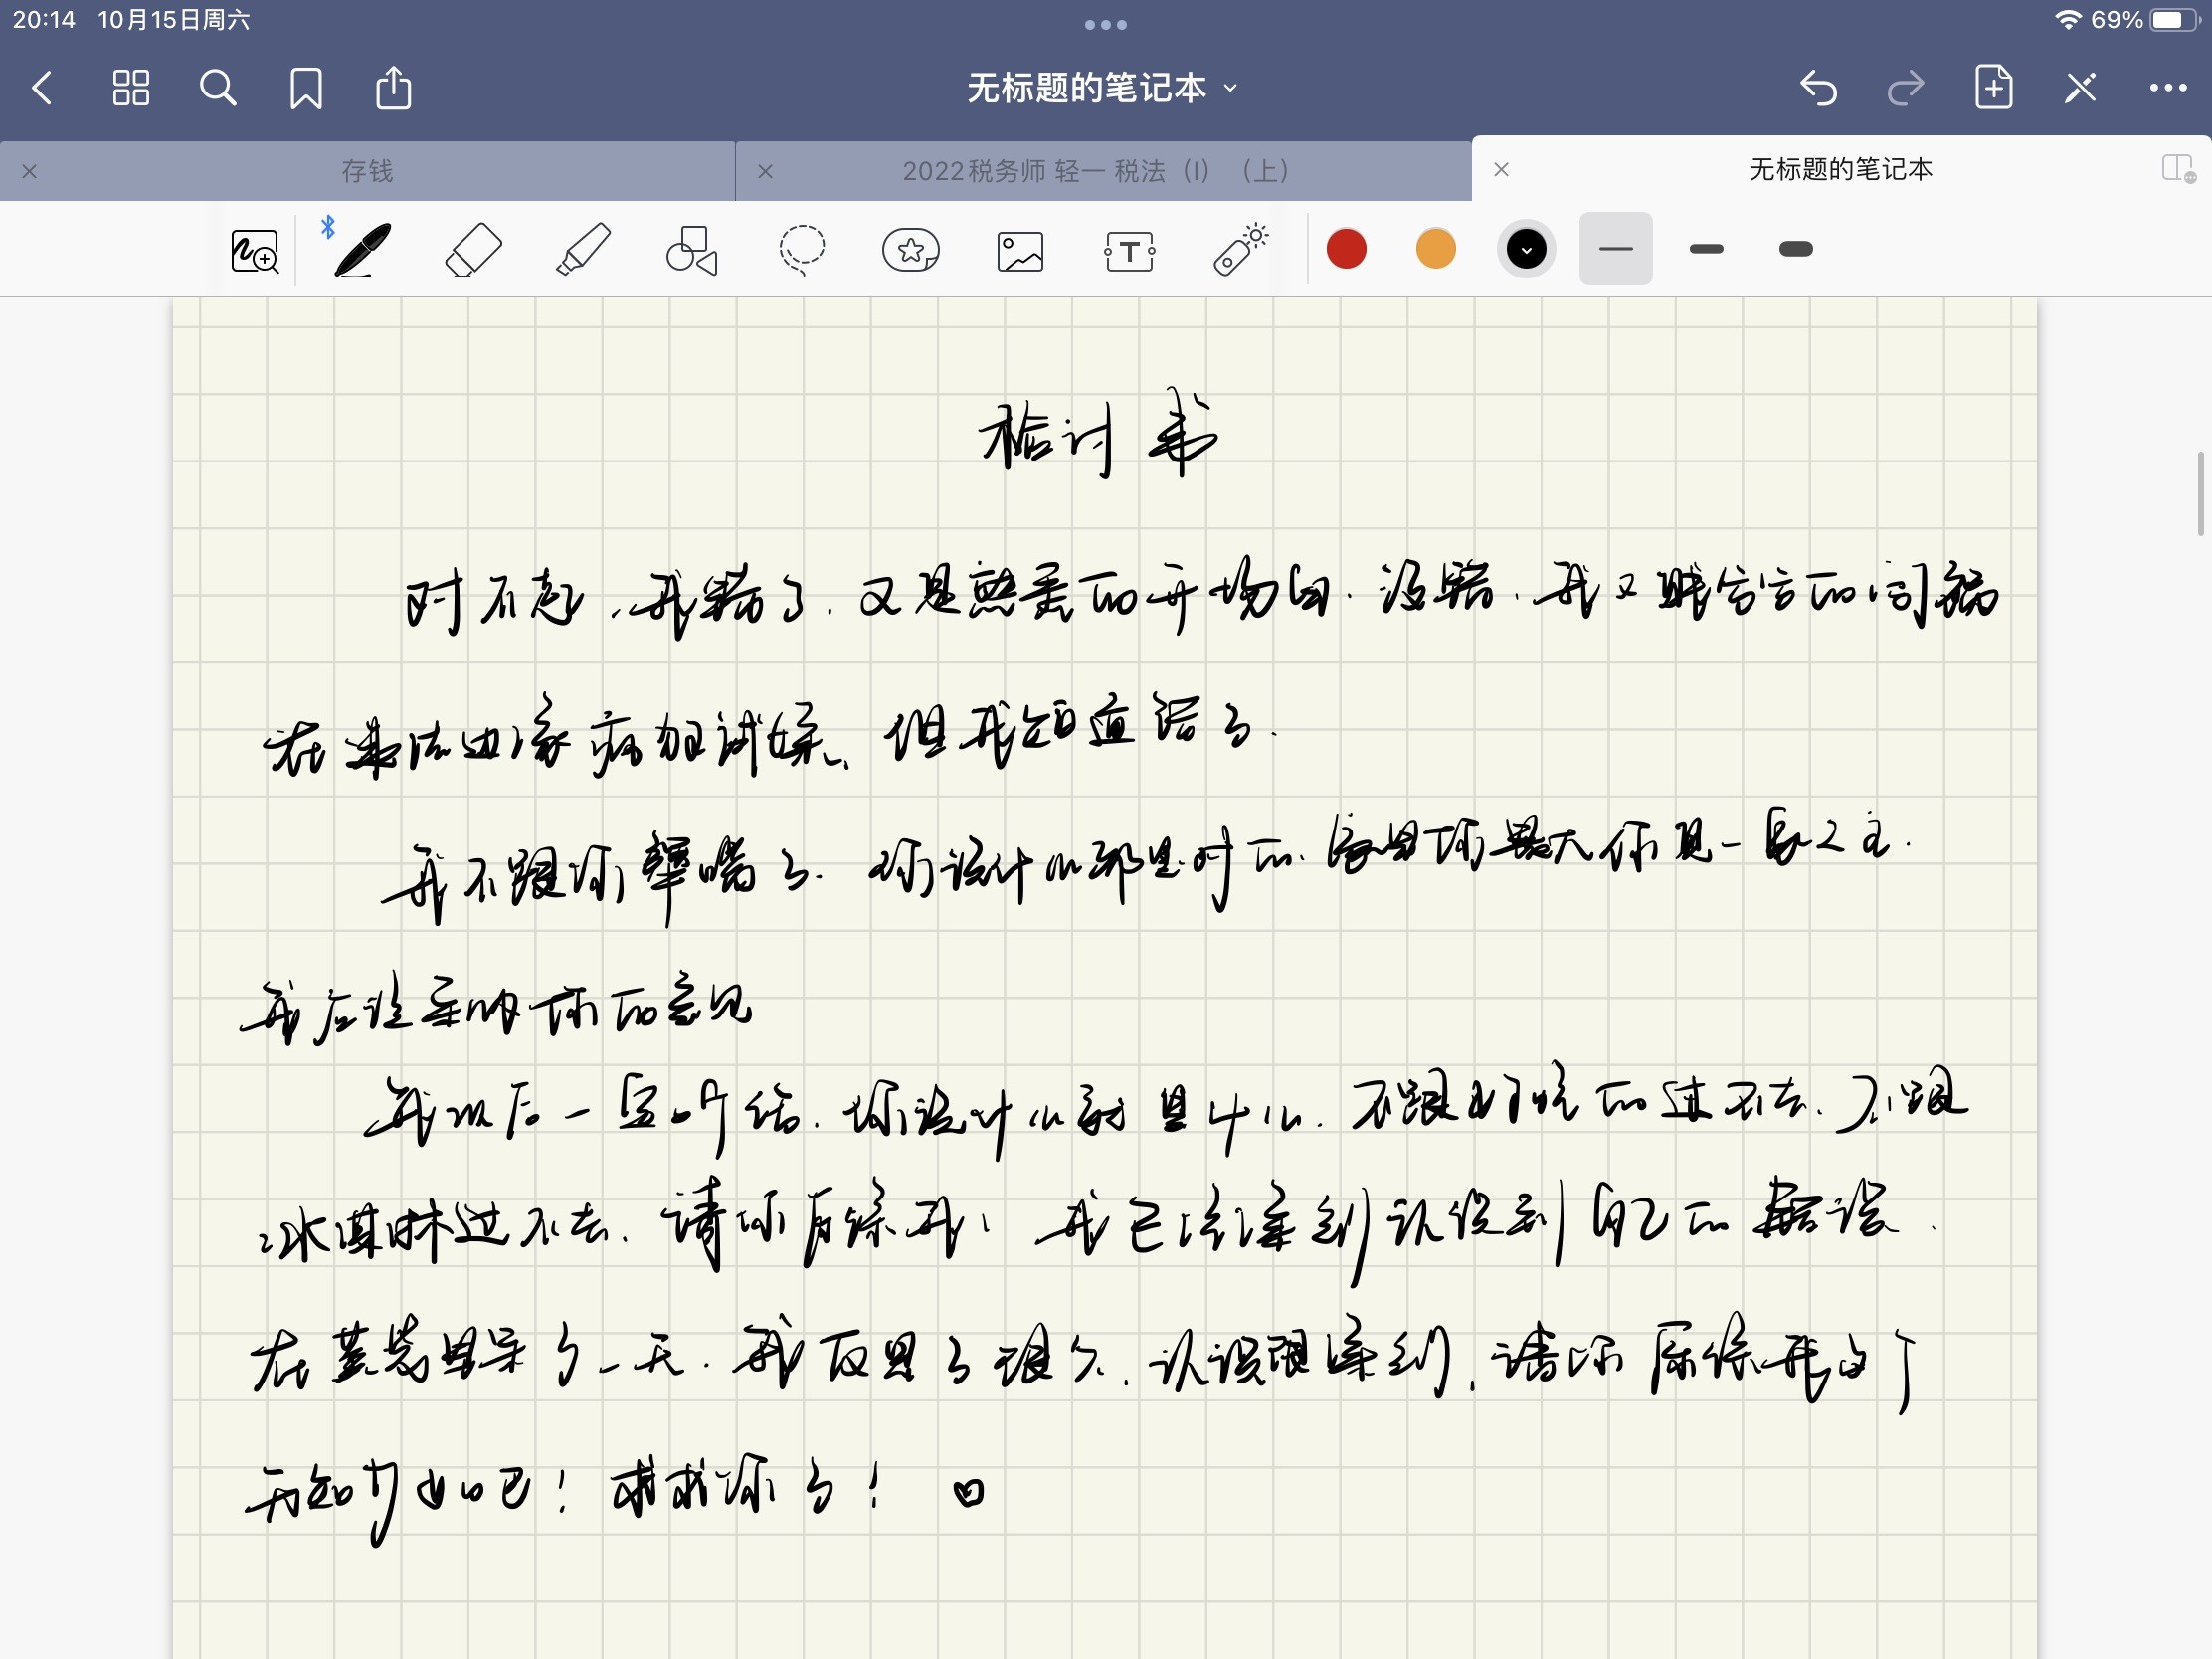 20:14 10月15日周六
69%
无标题的笔记本
存钱
2022税务师 轻一 税法（I）（上）
无标题的笔记本
T
检讨书
对不起，我错了，又是熟悉的开场白，没错，我又
在违法边缘疯狂试探，但我知道错了.
我不跟你犟嘴了.你说什么都是对的，家里你最大你是一家之主.
我应该采纳你的意见
我以后一定听话.你说什么就是什么.不跟好吃的过不去.不跟
冰淇淋过不去.请你原谅我！我已经深刻认识到自己的错误.
在煎熬里呆了一天.我反思了很久，认识很深刻，请你原谅我的年
无知吧！求求你了！